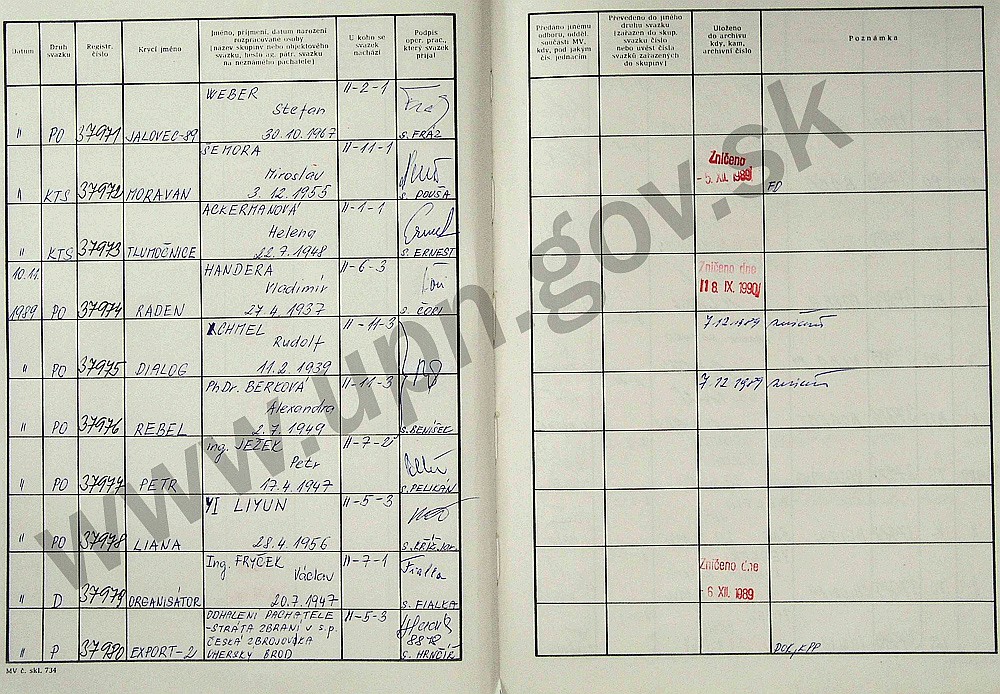 Datum
Druh svazku
Registr. číslo
Krycí jméno
Jméno, příjmení, datum narození
rozpracované osoby
(název skupiny nebo objektového
svazku, heslo ag. pátr. svazku
na neznámého pachatele)
U koho se
svazek
nachází
Podpis
oper. prac.,
který svazek
přijal
Předáno jinému
odboru, odděl.
součásti MV,
kdy, pod jakým
čís. jednacím
Převedeno do jiného
druhu svazku
(zařazen do skup.
svazku číslo
nebo uvést čísla
svazků zařazených
do skupiny)
Uloženo
do archivu
kdy, kam,
archivní číslo
Poznámka
WEBER II-2-1
Stefan
" PO 37971 JALOVEC-89 30.10.1967 s. FRÁZ
ŠEMORA II-11-1
Miroslav
" KTS 37972 MORAVAN 3.12.1955 s. POUŠA
Zničeno
- 5. XII. 1989
FO
ACKERMANOVÁ II-1-1
Helena
" KTS 37973 TLUMOČNICE 22.7.1948 s. ERNEST
10.11. HANDERA II-6-3
Vladimír
1989 PO 37974 RADEN 27.4.1937 s. ČOCI
Zničeno dne
18. IX. 1990
CHMEL II-11-3
Rudolf
" PO 37975 DIALOG 11.2.1939
7.12.1989
PhDr. BERKOVÁ II-11-3
Alexandra
" PO 37976 REBEL 2.7.1949 s. BENÍŠEK
7.12.1989
ing. JEŽEK II-7-2
Petr
" PO 37977 PETR 17.4.1947 s. PELIKÁN
YI LIYUN II-5-3
" PO 37978 LIANA 28.4.1956 s. KŘÍŽ
Ing. FRÝČEK II-7-1
Václav Fialka
" D 37979 ORGANISÁTOR 20.7.1947 s. FIALKA
Zničeno dne
- 6. XII. 1989
ODHALENÍ PACHATELE II-5-3
-STRÁTA ZBRANÍ v s.p.
ČESKÁ ZBROJOVKA
" P 37980 EXPORT-2 UHERSKÝ BROD s. HRNČÍŘ
MV č. skl. 734
www.upn.gov.sk